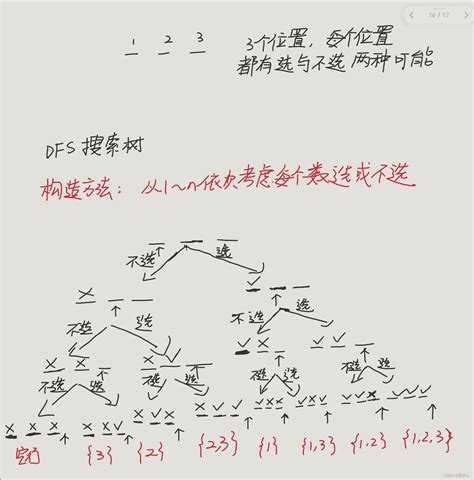 16 / 17
1 2 3
3个位置，每个位置
都有选与不选 两种可能
DFS 搜索树
构造方法： 从1~n依次考虑每个数选或不选
不选 选
X ✓
不选 选 不选 选
X X X ✓ ✓ X ✓ ✓
不选 选 不选 选 不选 选 不选 选
X X X X X ✓ X ✓ X X ✓ ✓ ✓ X X ✓ X ✓ ✓ ✓ X ✓ ✓ ✓
空行 {3} {2} {2,3} {1} {1,3} {1,2} {1,2,3}